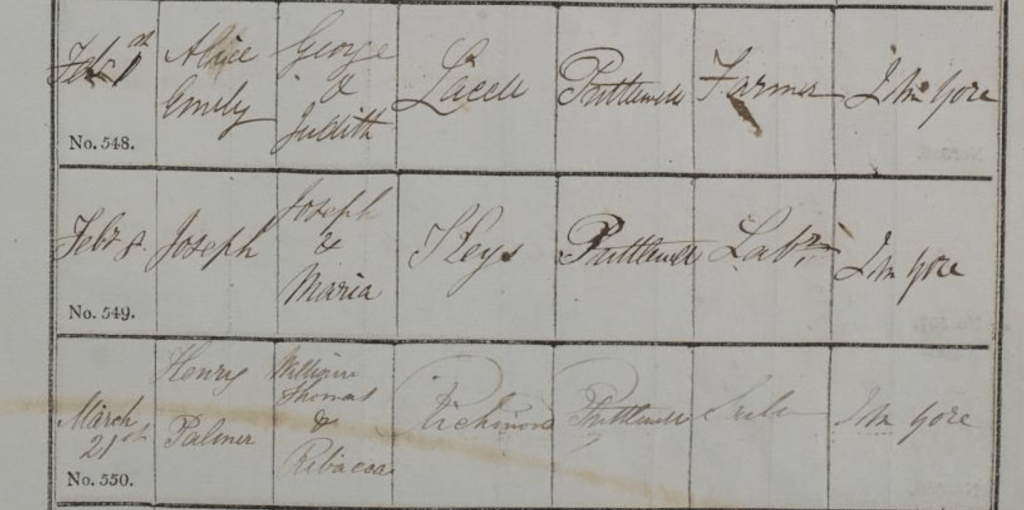 Feb. 1st
Alice
Emily
George
&
Judith
Lacell
Prittlewell
Farmer
Jn Gore
No. 548.
Febr 8.
Joseph
Joseph
&
Maria
Keys
Prittlewell
Labr.
Jn Gore
No. 549.
March
21st
Henry
Palmer
William
Thomas
&
Ribacca
Richmond
Prittlewell
Jn Gore
No. 550.